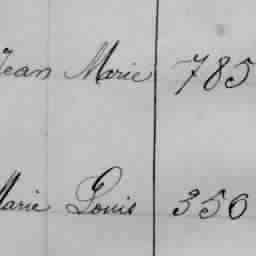 Jean Marie 785
Marie Louis 350